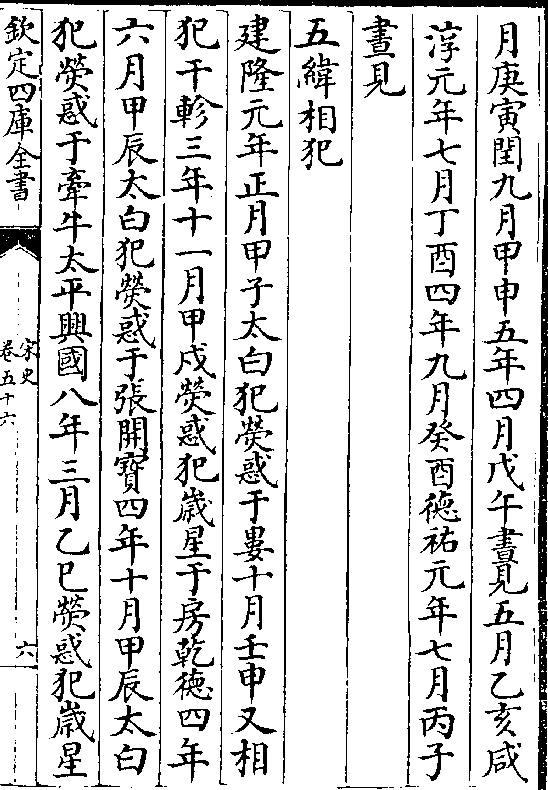 月庚寅閏九月甲申五年四月戊午晝見五月乙亥咸
淳元年七月丁酉四年九月癸酉德祐元年七月丙子
晝見
五緯相犯
建隆元年正月甲子太白犯熒惑于婁十月壬申又相
犯于軫三年十一月甲戌熒惑犯歲星于房乾德四年
六月甲辰太白犯熒惑于張開寶四年十月甲辰太白
犯熒惑于牽牛太平興國八年三月乙巳熒惑犯歲星
欽定四庫全書
宋史
卷五十六
六